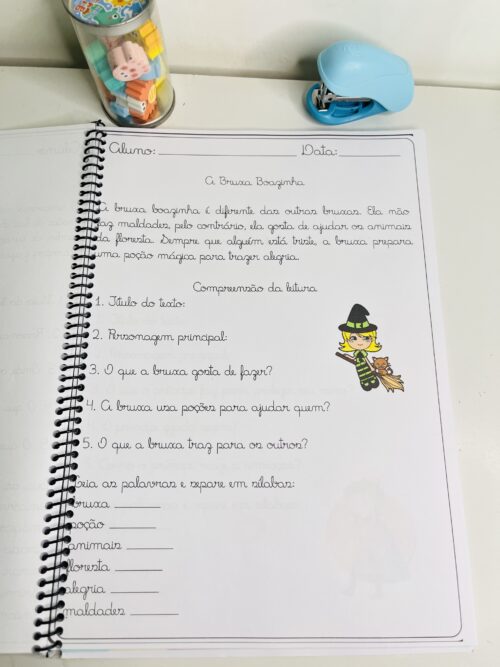 Aluno: Data:
A Bruxa Boazinha
A bruxa boazinha é diferente das outras bruxas. Ela não
faz maldades, pelo contrário, ela gosta de ajudar os animais
da floresta. Sempre que alguém está triste, a bruxa prepara
uma poção mágica para trazer alegria.
Compreensão da leitura
1. Título do texto:
2. Personagem principal:
3. O que a bruxa gosta de fazer?
4. A bruxa usa poções para ajudar quem?
5. O que a bruxa traz para os outros?
Leia as palavras e separe em sílabas:
bruxa
poção
animais
floresta
alegria
maldades